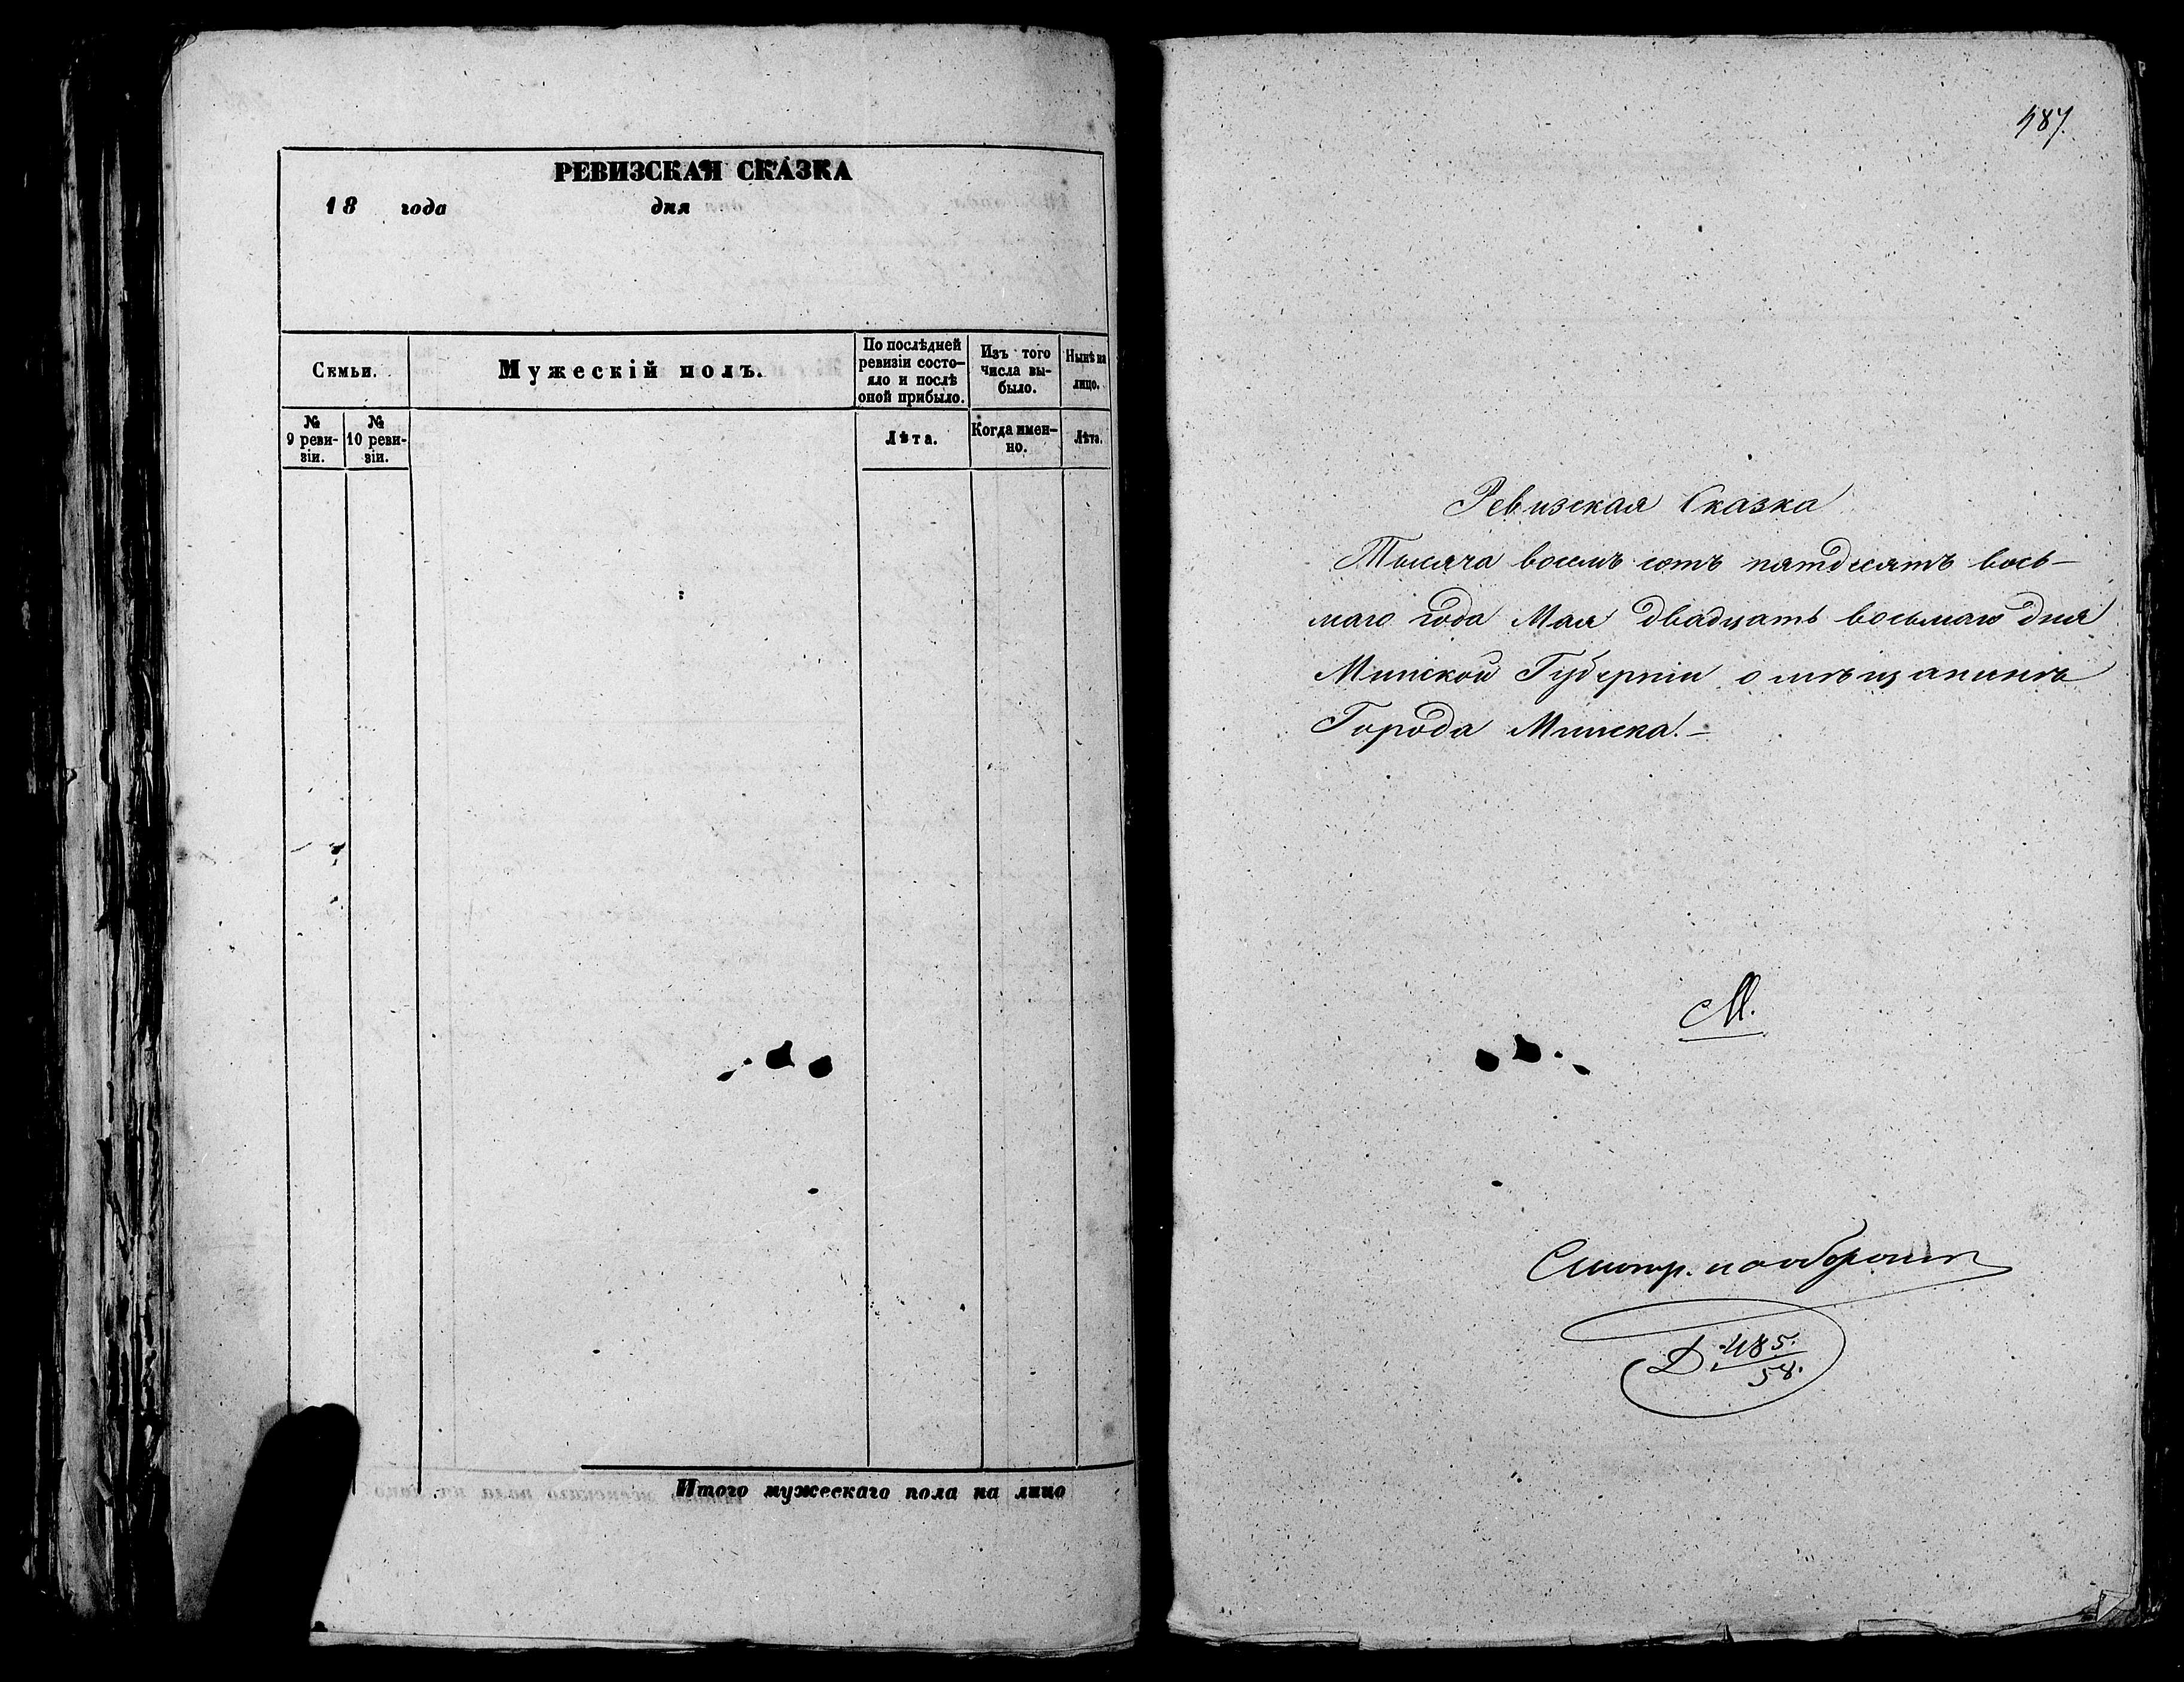 РЕВИЗСКАЯ СКАЗКА
18 года дня
Семьи.
Мужескій полъ.
По послѣдней
ревизіи состо-
яло и послѣ
оной прибыло.
Изъ того
числа вы-
было.
Нынѣ на
лицо.
№
9 реви-
зіи.
№
10 реви-
зіи.
Лѣта.
Когда имен-
но.
Лѣта.
Итого мужескаго пола на лицо
487.
Ревизская Сказка
Тысяча восемь сотъ пятдесятъ вось-
маго года Мая двадцать восьмаго дня
Минской Губерніи о мѣщанинѣ
Города Минска.-
М.
Смотр. на оборотѣ
Д. 485.
58.